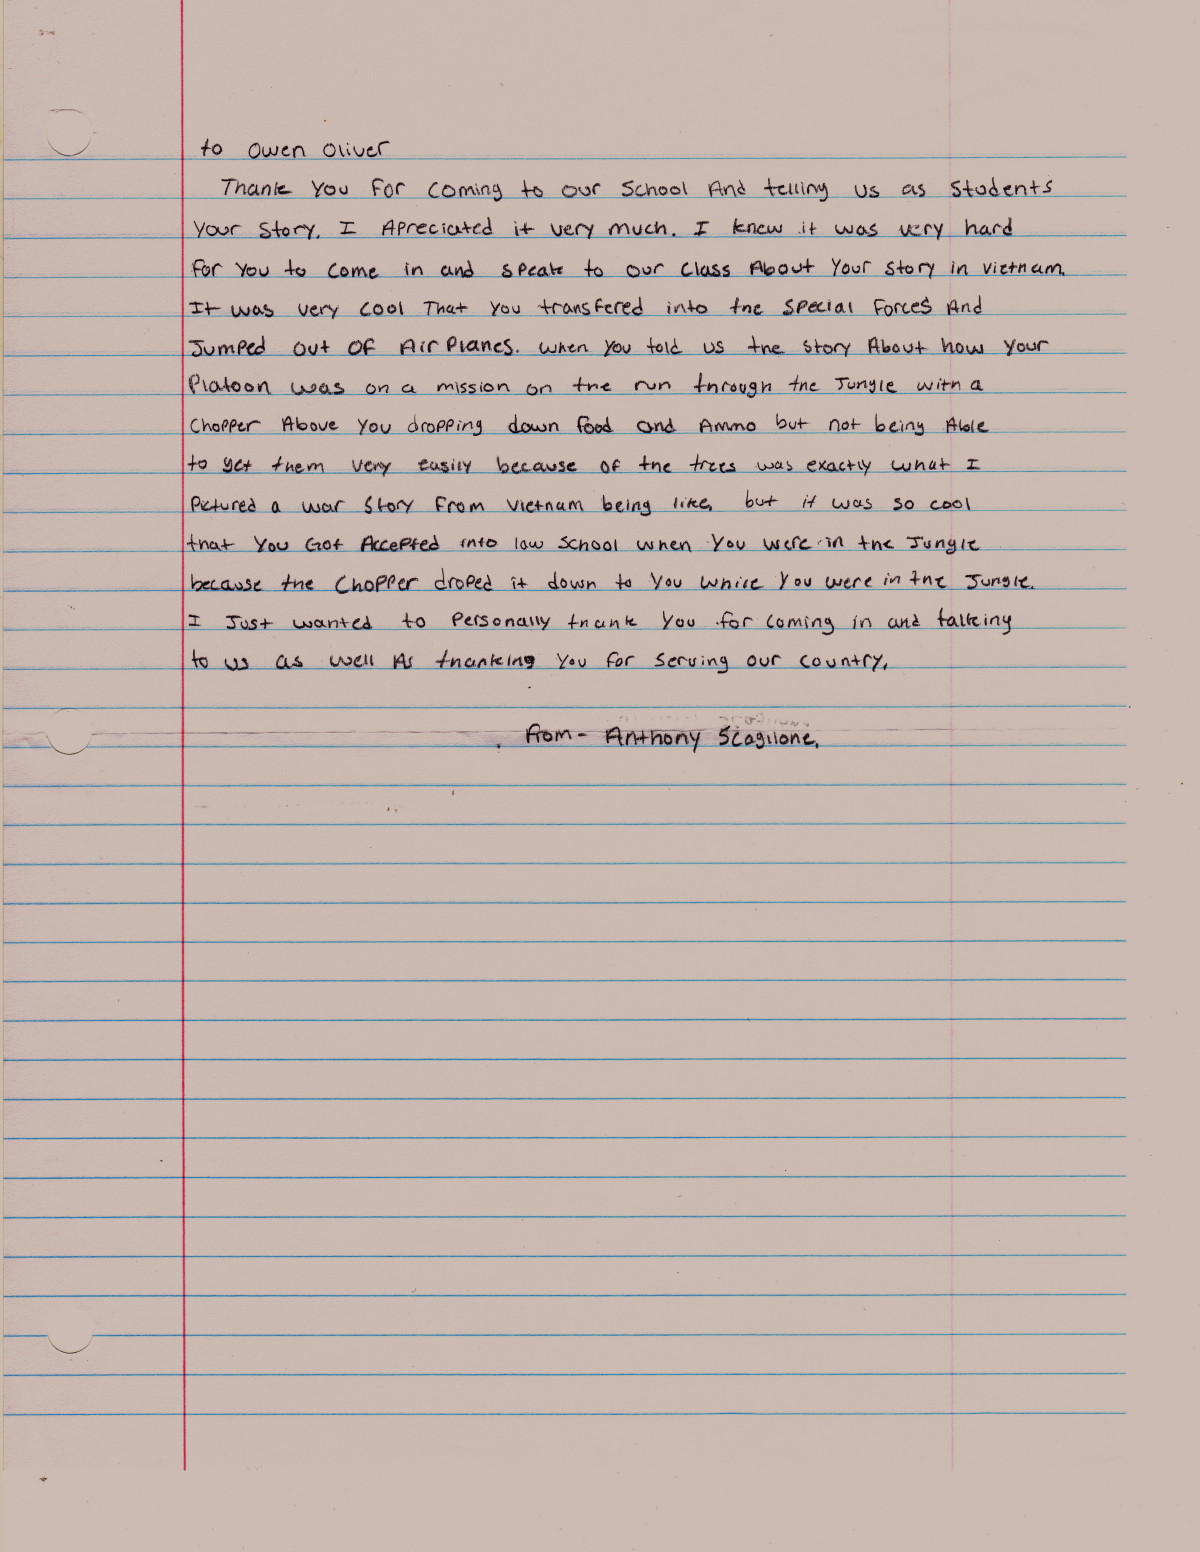 to Owen Oliver
Thank You For Coming to our School And telling us as Students
Your Story. I Apreciated it very much. I knew it was very hard
for You to Come in and speak to our Class About Your Story in vietnam.
It was very cool That You transfered into the Special Forces And
Jumped out OF AirPlanes. When You told us the Story About how Your
Platoon was on a mission on the run through the Jungle with a
Chopper Above You dropping down food and Ammo but not being Able
to get them very easily because OF the trees was exactly what I
Pictured a war Story From Vietnam being like, but it was so cool
that You Got Accepted into law School when You were in the Jungle
because the Chopper droped it down to You while You were in the Jungle.
I Just wanted to Personally thank You for Coming in and talking
to us as well As thanking You for Serving our Country.
from- Anthony Scaglione.